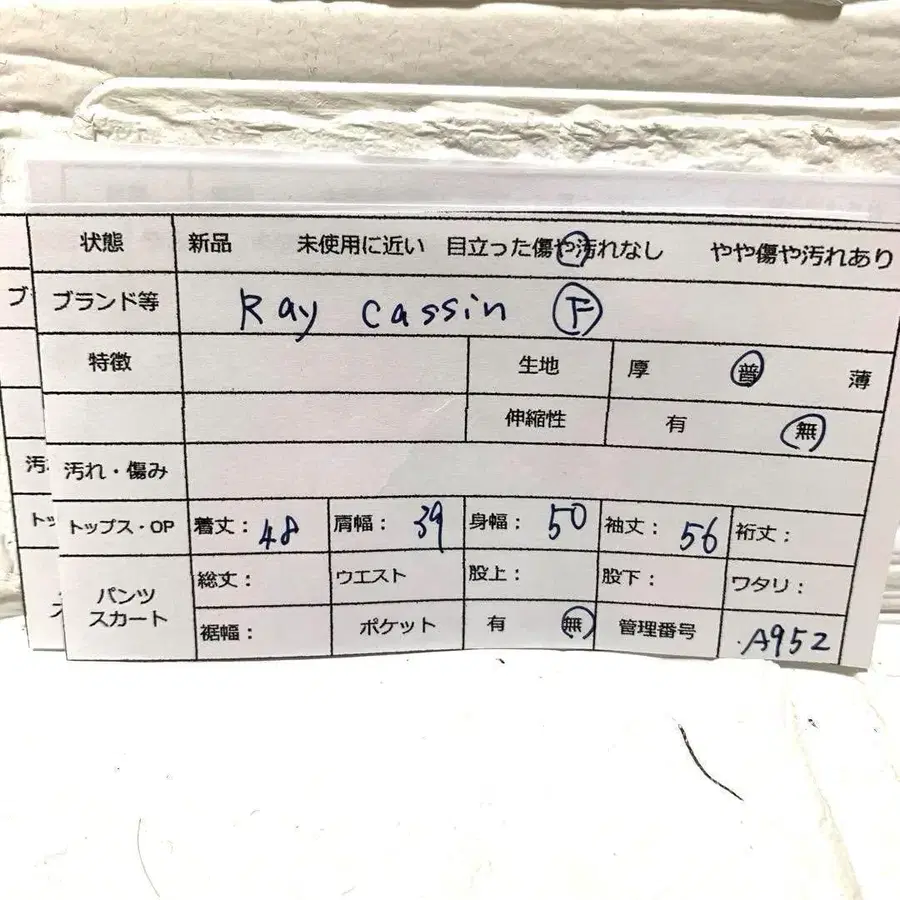 状態 新品 未使用に近い 目立った傷や汚れなし やや傷や汚れあり
ブランド等 Ray cassin F
特徴 生地 厚 普 薄
伸縮性 有 無
汚れ・傷み
トップス・OP 着丈: 48 肩幅: 39 身幅: 50 袖丈: 56 裄丈:
パンツ スカート 総丈: ウエスト 股上: 股下: ワタリ:
裾幅: ポケット 有 無 管理番号 A952